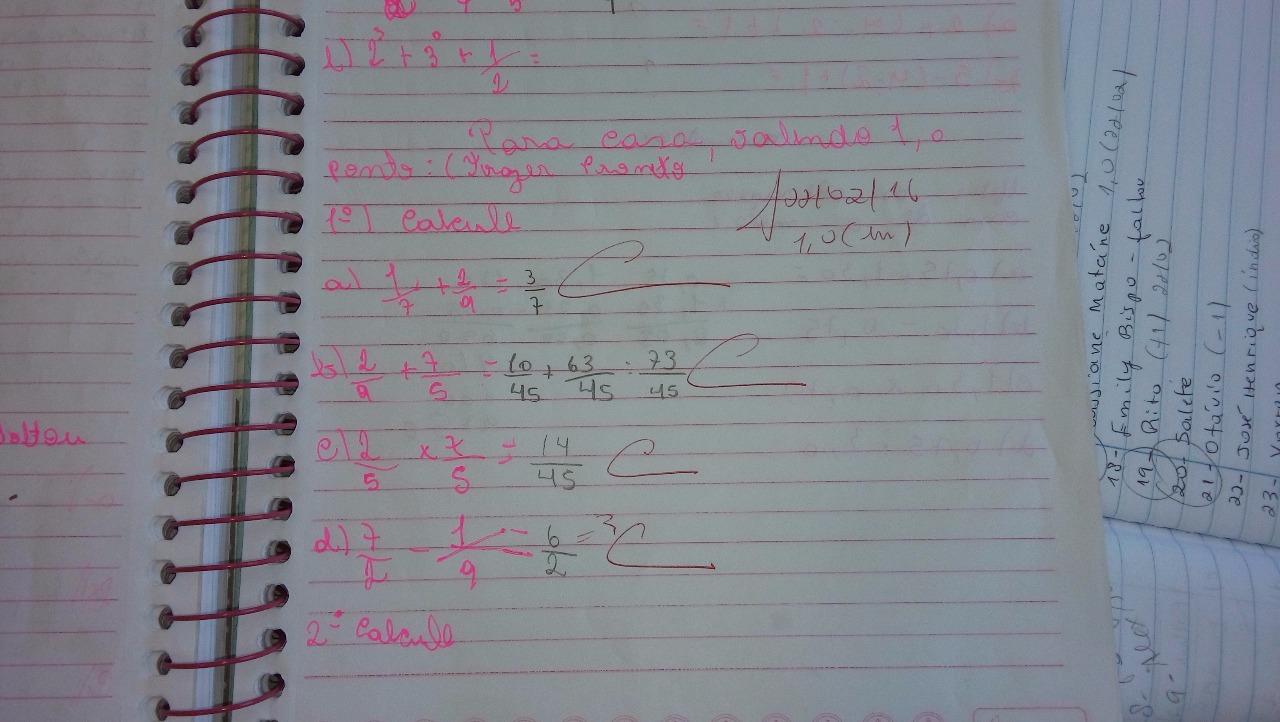 b) 2³ + 3⁰ + 1/2 =
Para casa, valindo 1,0
ponto: (Trazer Pronto
22/02/16
1,0 (um)
1º) Calcule
a) 1/7 + 2/9 = 3/7
b) 2/9 + 7/5 = 10/45 + 63/45 = 73/45
c) 2/5 × 7/5 = 14/45
d) 7/2 - 1/9 = 6/2 = 3
2º Calcule
Matáne 1,0 (22/02)
18- Emily Bispo - falhou
19- Rito (+1) 22/02
20- Salete
21- Otávio (-1)
22- José Henrique (índio)
23-
8-
9-